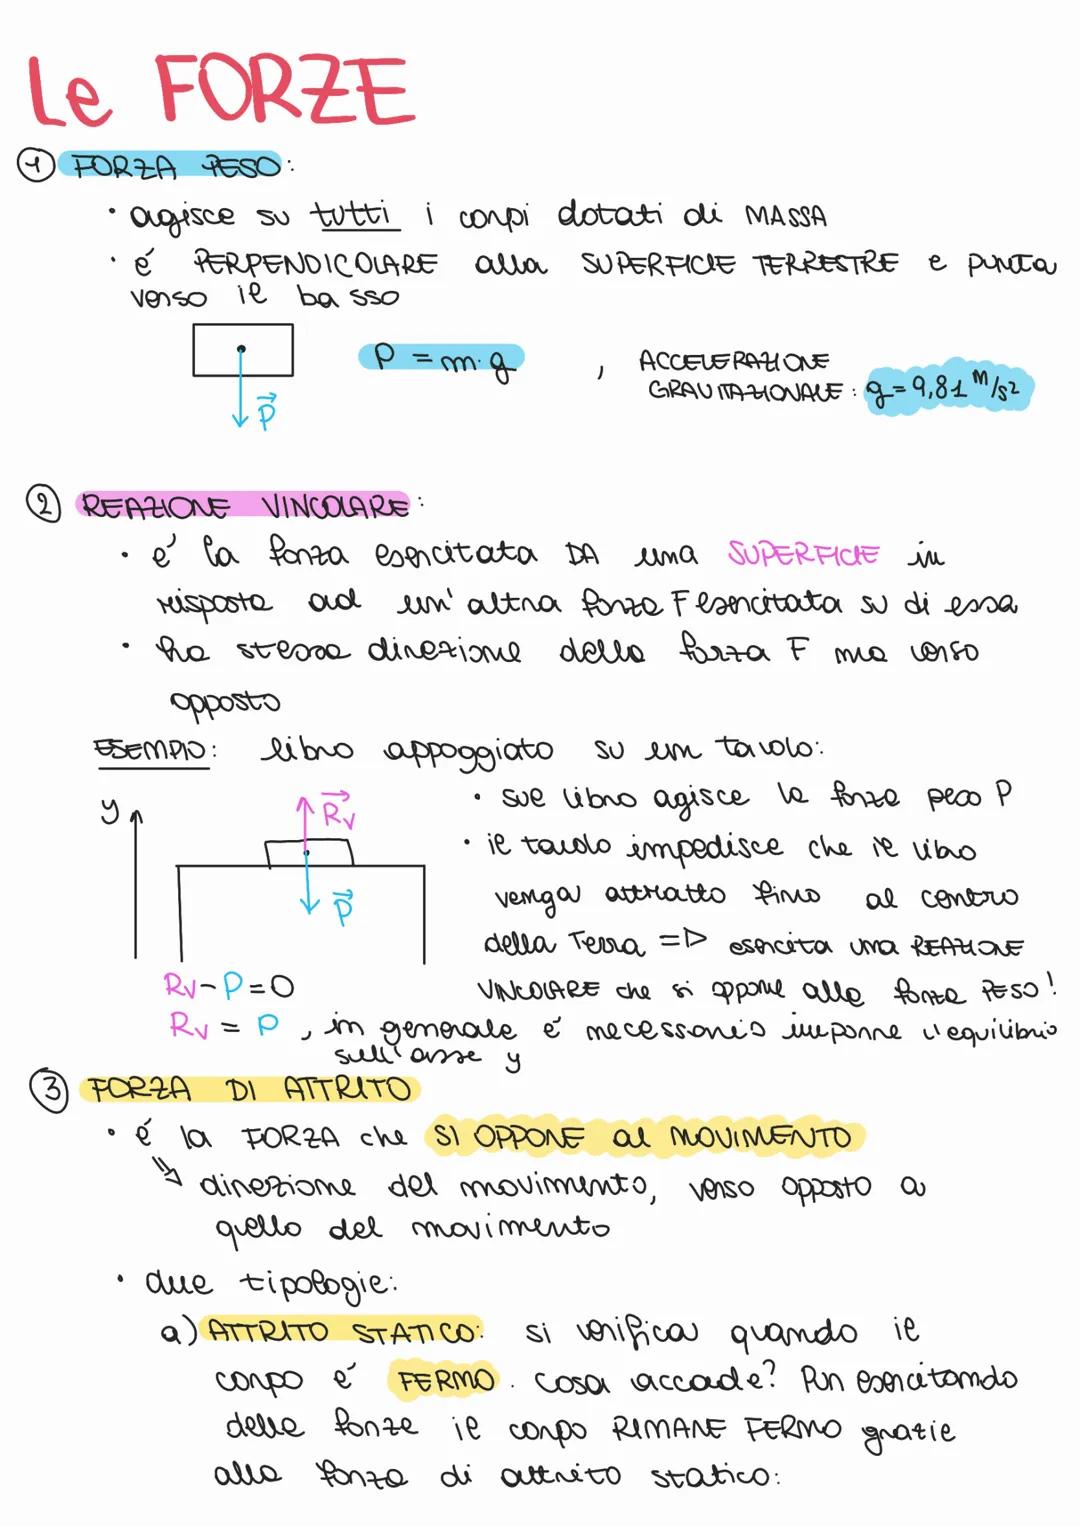 Le FORZE
1 FORZA PESO:
• agisce su tutti i corpi dotati di MASSA
• é PERPENDICOLARE alla SUPERFICIE TERRESTRE e punta
verso il basso
P = m·g , ACCELERAZIONE
GRAVITAZIONALE : g=9,81 m/s²
P
2 REAZIONE VINCOLARE:
• e' la forza esercitata DA una SUPERFICIE in
risposta ad un'altra forza F esercitata su di essa
• ha stessa direzione della forza F ma verso
opposto
ESEMPIO: libro appoggiato su un tavolo:
• sul libro agisce la forza peso P
y
Rv
• il tavolo impedisce che il libro
venga attratto fino al centro
P
della Terra => esercita una REAZIONE
Rv-P=0
VINCOLARE che si oppone alla forza PESO!
Rv = P , in generale é necessario imporre l'equilibrio
sull'asse y
3 FORZA DI ATTRITO
• é la FORZA che SI OPPONE al MOVIMENTO
direzione del movimento, verso opposto a
quello del movimento
• due tipologie:
a) ATTRITO STATICO: si verifica quando il
corpo é FERMO. Cosa accade? Pur esercitando
delle forze il corpo RIMANE FERMO grazie
alla forza di attrito statico: